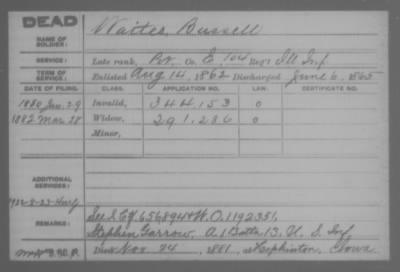 DEAD
NAME OF SOLDIER:
Waites, Bussell
SERVICE:
Late rank, Pv. Co. E, 104 Reg't Ill Inf.
TERM OF SERVICE:
Enlisted Aug 14, 1862 Discharged June 6, 1865
DATE OF FILING. CLASS. APPLICATION NO. LAW. CERTIFICATE NO.
1880 Jan. 29 Invalid, 344,153 0
1882 Mar 28 Widow, 291,286 0
Minor,
ADDITIONAL SERVICES:
REMARKS:
See 656894 W.O. 1192351,
Stephen Garrow, A 1 Battn 13, U. S. Inf
Died Nov 24, 1881, at Hepkinton, Iowa